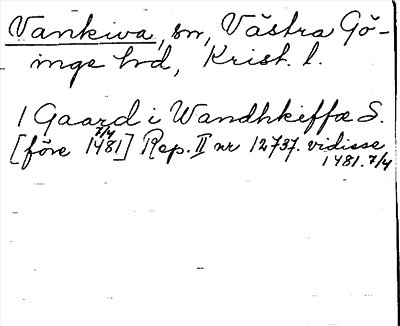 Vankiva, sn, Västra Gö-
inge hd, Krist. l.
1 Gaard i Wandhkeffæ S.
[före 7/4 1481] Rep. II nr 12737. vidisse
1481. 7/4